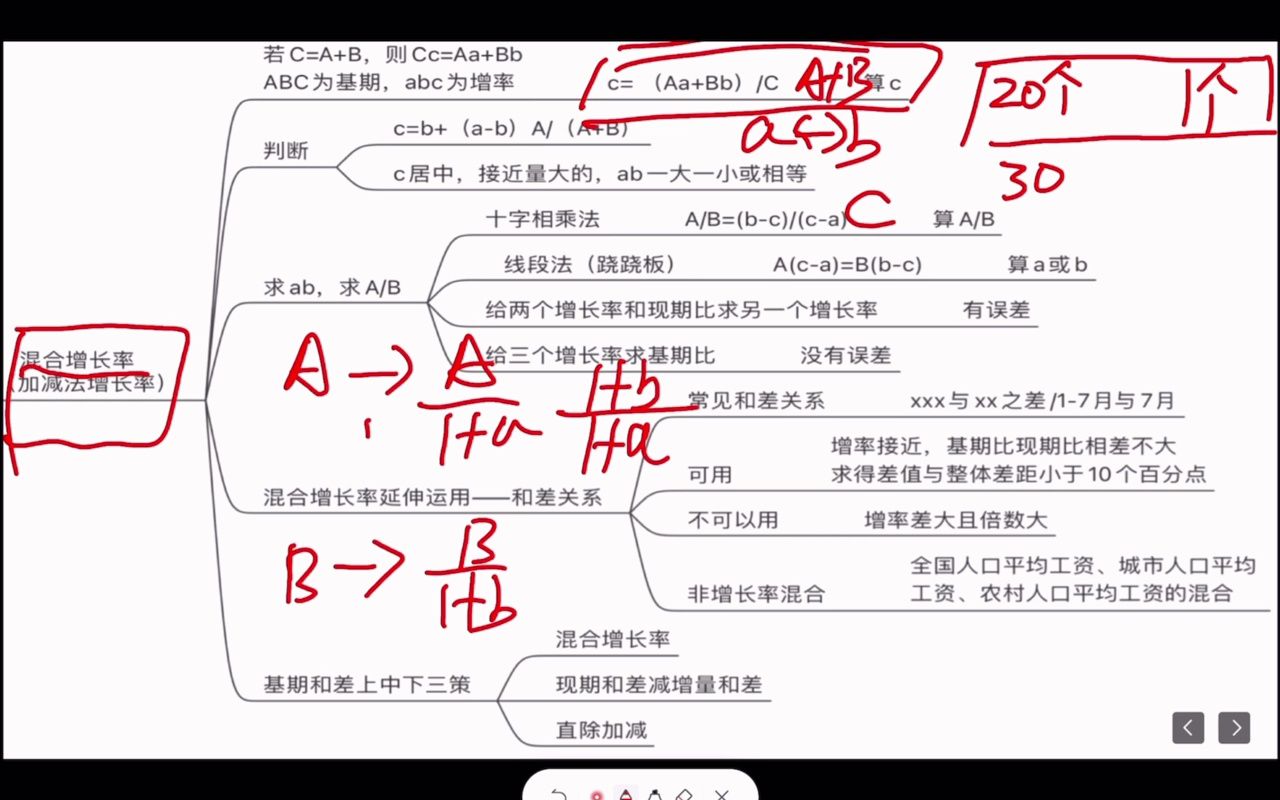 若C=A+B，则Cc=Aa+Bb
ABC为基期，abc为增率
c= （Aa+Bb）/C
A+B
算c
20个 1个
30
a↔b
c
判断
c=b+（a-b）A/（A+B）
c居中，接近量大的，ab一大一小或相等
求ab，求A/B
十字相乘法 A/B=(b-c)/(c-a) 算A/B
线段法（跷跷板） A(c-a)=B(b-c) 算a或b
给两个增长率和现期比求另一个增长率 有误差
给三个增长率求基期比 没有误差
混合增长率
（加减法增长率）
A → A/1+a 1+b/1+a
B → B/1+b
混合增长率延伸运用——和差关系
常见和差关系 xxx与xx之差/1-7月与7月
可用
增率接近，基期比现期比相差不大
求得差值与整体差距小于10个百分点
不可以用 增率差大且倍数大
非增长率混合
全国人口平均工资、城市人口平均
工资、农村人口平均工资的混合
基期和差上中下三策
混合增长率
现期和差减增量和差
直除加减